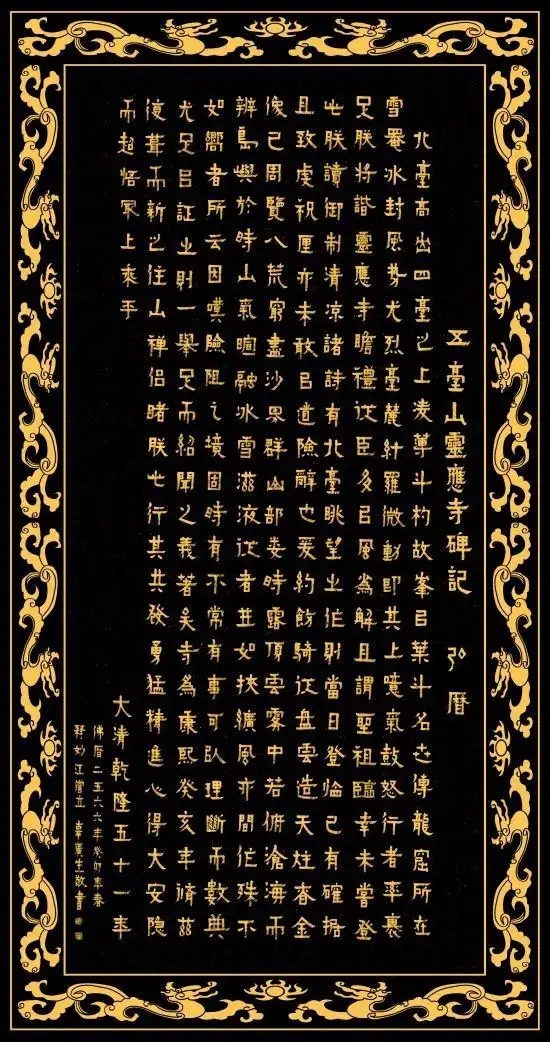 五臺山靈應寺碑記 弘曆
北臺高出四臺之上凌萼斗杓故峯以葉斗名世傳龍窟所在
雪罨冰封風勢尤烈臺麓紺羅微動即其上噫氣鼓怒行者率裹
足朕將詣靈應寺瞻禮從臣多以風為解且謂聖祖臨幸未嘗登
此朕讀御制清涼諸詩有北臺眺望之作則當日登臨已有確据
且致虔祝厘亦未敢以道險辭也爰約飭騎從盤雲造天炷香金
像已周覽八荒窮盡沙界群山部婁時露頂雲霧中若俯滄海而
辨島嶼於時山氣暄融冰雪滋液從者並如挾纊風亦間作殊不
如嚮者所云因嘆險阻之境固時有不常有事可以理斷而數典
尤足以証之則一舉足而紹聞之義著矣寺為康熙癸亥年脩茲
復葺而新之住山禪侶睹朕此行其共發勇猛精進心得大安隱
而超悟最上乘乎
大清乾隆五十一年
佛曆二五六六年癸卯年春
釋妙江 立 敬書